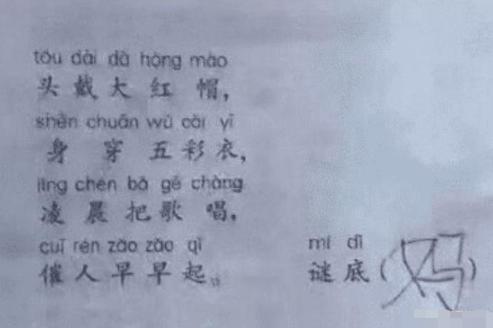 tóu dài dà hóng mào
头戴大红帽，
shēn chuān wǔ cǎi yī
身穿五彩衣，
líng chén bǎ gē chàng
凌晨把歌唱，
cuī rén zǎo zǎo qǐ mí dǐ
催人早早起。 谜底（妈